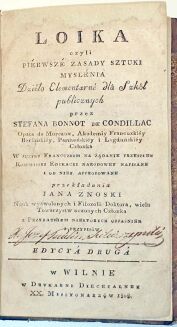 LOIKA
czyli
PIERWSZE ZASADY SZTUKI
MYSLENIA
Dzieło Elementarne dla Szkół
publicznych
przez
STEFANA BONNOT DE CONDILLAC
Opata de Mureaux, Akademiy Francuzkiéy
Berlińskiéy, Parmeńskiéy i Lugduńskiéy
Członka
W JĘZYKU FRANCUZKIM NA ŻĄDANIE PRZESZŁEY
KOMMISSYI EDUKACYI NARODOWEY NAPISANE
I OD NIEY APPROBOWANE
przekładania
JANA ZNOSKI
Nauk wyzwolonych i Filozofii Doktora, wielu
Towarzystw uczonych Członka
Z PRZYDATKIEM NIEKTÓRYCH OBJAŚNIEŃ
EDYCYA DRUGA
w WILNIE
w DRUKARNI DIECEZALNEY
XX. MISSYONARZÓW